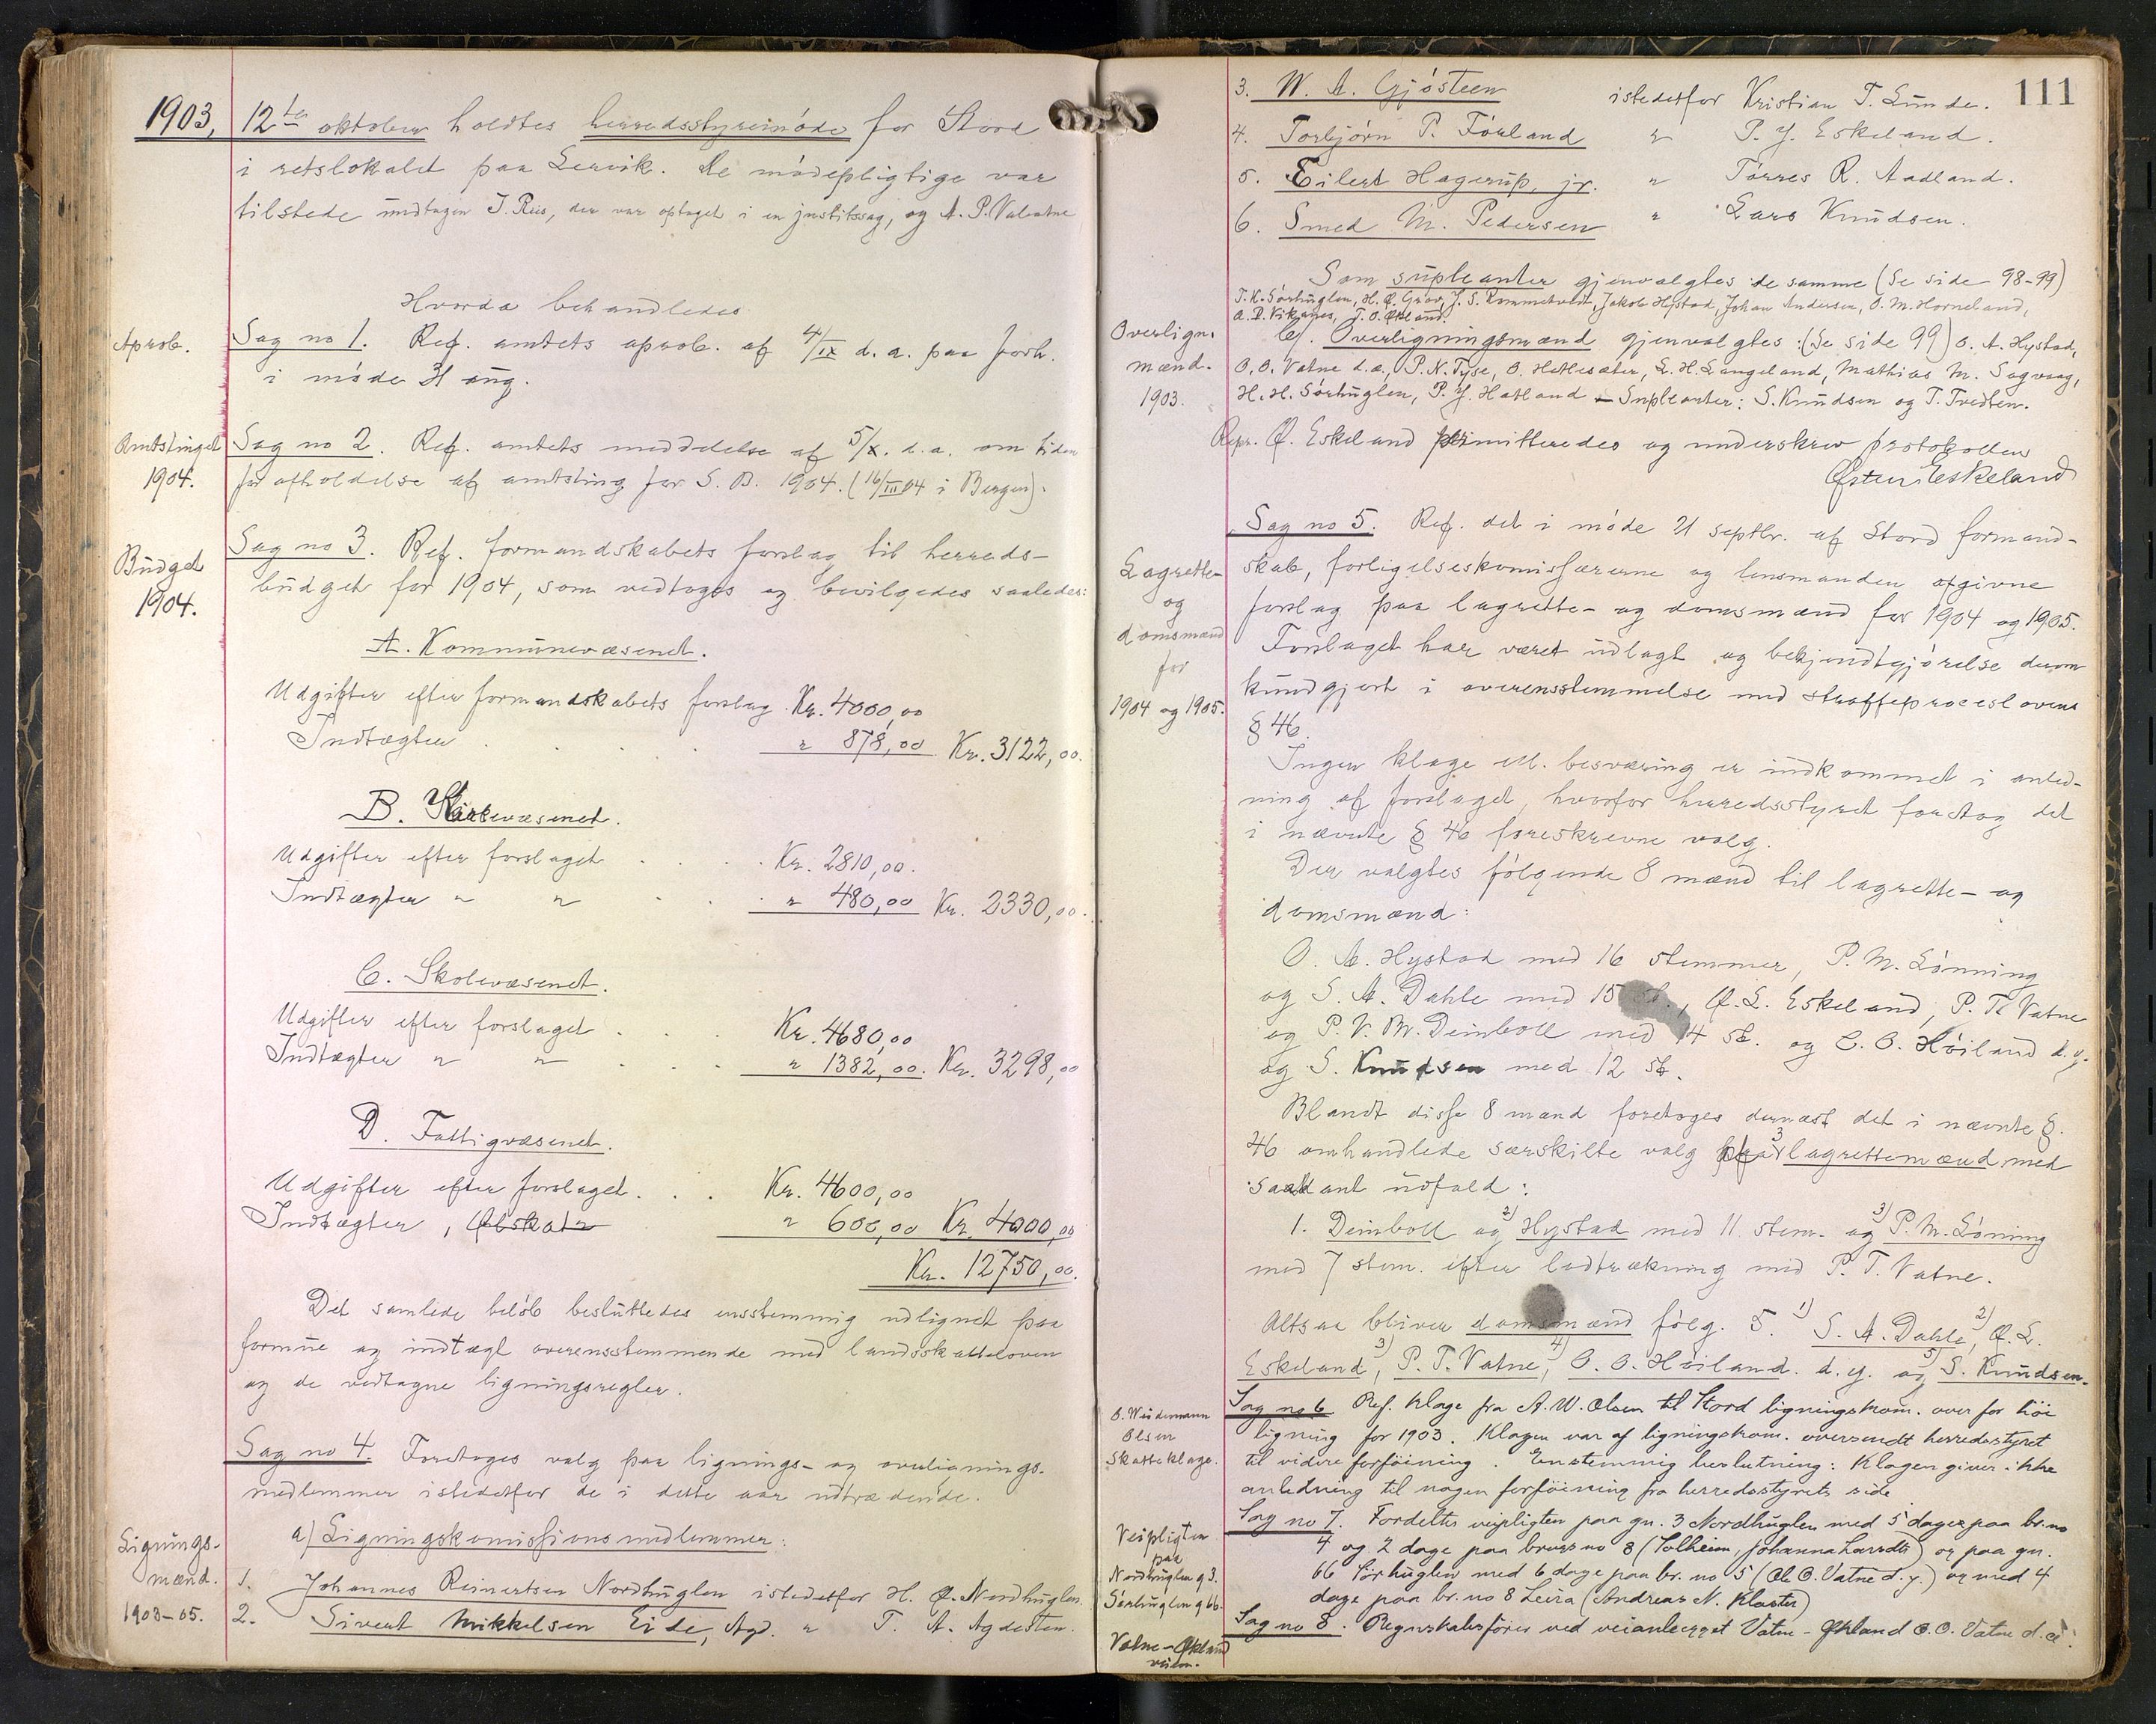 1903, 12te oktober holdtes herredsstyremöde for Stord
i retslokalet paa Lervik. De mödepligtige var
tilstede undtagen J. Riis, der var optaget i en justitssag, og A. P. Valvatne
Hvorda behandledes
Aprob. Sag no 1. Ref. amtets aprob. af 4/IX d. a. paa forh.
i möde 31 aug.
Amtstinget Sag no 2. Ref. amtets meddelelse af 5/X. d. a. om tiden
1904. for afholdelse af amtsting for S. B. 1904. (16/III 04 i Bergen).
Budget Sag no 3. Ref. formandskabets forslag til herreds-
1904. budget for 1904, som vedtoges og bevilgedes saaledes:
A. Kommunevæsenet.
Udgifter efter formandskabets forslag. Kr. 4000,00
Indtægter . . . . " 878,00 Kr. 3122,00.
B. Kirkevæsenet.
Udgifter efter forslaget . . . . Kr. 2810,00.
Indtægter " " . . . " 480,00 Kr. 2330,00.
C. Skolevæsenet.
Udgifter efter forslaget . . . Kr. 4680,00
Indtægter " " . . . " 1382,00. Kr. 3298,00
D. Fattigvæsenet.
Udgifter efter forslaget. . . Kr. 4600,00
Indtægter, Ølskat " 600,00 Kr. 4000,00
Kr. 12750,00.
Det samlede belöb besluttedes ensstemmig udlignet paa
formue og indtægt overensstemmende med landsskatteloven
og de vedtagne ligningsregler.
Sag no 4. Foretoges valg paa lignings- og overlignings-
medlemmer istedetfor de i dette aar udtrædende.
Lignings- a) Ligningskomissionsmedlemmer:
mænd. 1. Johannes Reinertsen Nordhuglen istedetfor H. Ø. Nordhuglen.
1903-05. 2. Sivert Mikkelsen Eide, Agd. " T. A. Agdesten.
111
3. W. A. Gjösteen istedetfor Kristian T. Lunde.
4. Torbjörn P. Förland " P. J. Eskeland.
5. Eilert Hagerup, jr. " Törres R. Aadland.
6. Smed M. Pedersen " Lars Knudsen.
Som supleanter gjenvalgtes de samme (Se side 98-99)
T. K. Sörhuglen, H. Ø. Grov, J. S. Rommetvedt, Jakob Hystad, Johan Andersen, O. M. Horneland,
A. D. Vikanes, T. O. Økland.
Overlign. b). Overligningsmænd gjenvalgtes: (Se side 99) O. A. Hystad,
mænd. O. O. Vatne d. æ., P. N. Tyse, O. Hetlesæter, L. H. Langeland, Mathias M. Sagvaag,
1903. H. H. Sörhuglen, P. J. Hatland - Supleanter: S. Knudsen og T. Tvedten.
Repr. Ø. Eskeland permitteredes og underskrev protokollen
Østen Eskeland
Sag no 5. Ref. det i möde 21 septbr. af Stord formand-
Lagrette- skab, forligelseskomissærerne og lensmanden afgivne
og forslag paa lagrette- og domsmænd for 1904 og 1905.
domsmænd Forslaget har været udlagt og bekjendtgjörelse derom
for kundgjort i overensstemmelse med straffeproceslovens
1904 og 1905. § 46.
Ingen klage ell. besværing er indkommet i anled-
ning af forslaget, hvorfor herredsstyret foretog det
i nævnte § 46 foreskrevne valg.
Der valgtes fölgende 8 mænd til lagrette- og
domsmænd:
O. A. Hystad med 16 stemmer, P. M. Lönning
og S. A. Dahle med 15 st., Ø. L. Eskeland, P. T. Vatne
og P. V. M. Deinboll med 14 st. og O. O. Höiland d. y.
og S. Knudsen med 12 st.
Blandt disse 8 mænd foretoges dernæst det i nævnte §.
46 omhandlede særskilte valg paa 3 lagrettemænd med
saadant udfald:
1. Deinboll og 2) Hystad med 11 stem. og 3) P. M. Löning
med 7 stem. efter lodtrækning med P. T. Vatne.
Altsaa bliver domsmænd fölg. 5. 1) S. A. Dahle, 2) Ø. L.
Eskeland, 3) P. T. Vatne, 4) O. O. Höiland. d. y. og 5) S. Knudsen.
O. Weidemann Sag no 6 Ref. klage fra A. W. Olsen til Stord ligningskom. over for höi
Olsen ligning for 1903. Klagen var af ligningskom. oversendt herredsstyret
Skatteklage. til videre forföining. Enstemmig beslutning: Klagen giver ikke
anledning til nogen forföining fra herredsstyrets side
Veipligten Sag no 7. Fordeltes veipligten paa gn. 3 Nordhuglen med 5 dage paa br. no
paa 4 og 2 dage paa brugs no 8 (Solheim, Johanna Larsdtr) og paa gn.
Nordhuglen g 3. 66 Sörhuglen med 6 dage paa br. no 5 (Ole O. Vatne d. y.) og med 4
Sörhuglen g 66. dage paa br. no 8 Leira (Andreas N. Kloster)
Vatne-Økland Sag no 8. Regnskabsförer ved veianlægget Vatne - Økland O. O. Vatne d. æ.
veien.